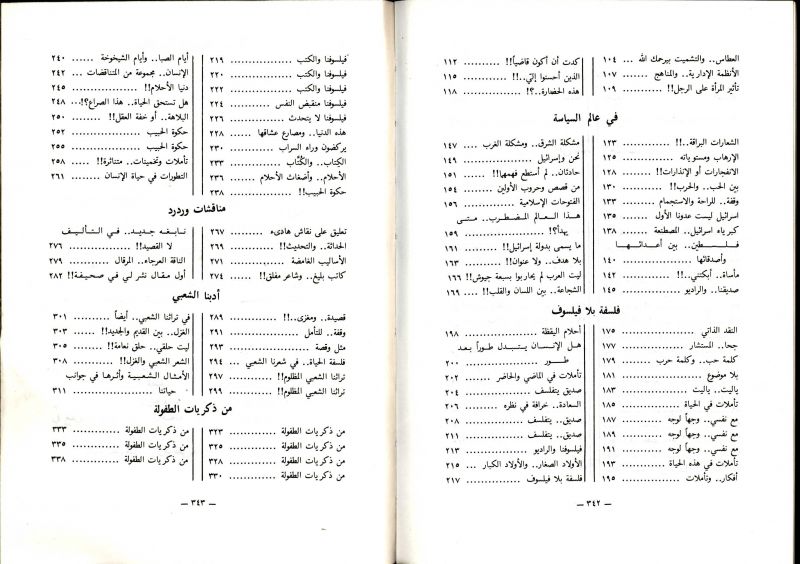 العطاس.. والتشميت بيرحمك الله ١٠٤
الأنظمة الإدارية.. والمناهج ١٠٧
تأثير المرأة على الرجل!! ١٠٩
كدت أن أكون قاضياً!! ١١٢
الذين أحسنوا إليّ..!! ١١٥
هذه الحضارة..؟! ١١٨
في عالم السياسة
الشعارات البراقة..!! ١٢٣
الإرهاب ومستوياته ١٢٥
الانفجارات أو الإنذارات!! ١٢٨
بين الحب.. والحرب!! ١٣٠
وقفة.. للراحة والاستجمام ١٣٣
اسرائيل ليست عدونا الأول ١٣٥
كبرياء اسرائيل.. المصطنعة ١٣٨
فلسطين.. بين أعدائها
وأصدقائها ١٤٠
مأساة.. أبكتني..!! ١٤٢
صديقنا.. والراديو ١٤٥
مشكلة الشرق.. ومشكلة الغرب ١٤٧
نحن وإسرائيل ١٤٩
حادثان.. لم أستطع فهمها!! ١٥١
من قصص وحروب الأولين ١٥٤
الفتوحات الإسلامية ١٥٦
هذا العالم المضطرب.. متى
يهدأ؟! ١٥٩
ما يسمى بدولة إسرائيل!! ١٦١
بلا هدف.. ولا عنوان!! ١٦٣
ليت العرب لم يحاربوا بسبعة جيوش!! ١٦٦
الشجاعة.. بين اللسان والقلب!! ١٦٩
فلسفة بلا فيلسوف
النقد الذاتي ١٧٥
جحا.. المستشار ١٧٧
كلمة حب.. وكلمة حرب ١٧٩
بلا موضوع ١٨١
ياليت.. ياليت ١٨٣
تأملات في الحياة ١٨٥
مع نفسي.. وجهاً لوجه ١٨٧
مع نفسي.. وجهاً لوجه ١٨٩
مع نفسي.. وجهاً لوجه ١٩١
تأملات في هذه الحياة ١٩٣
أفكار.. وتأملات ١٩٥
أحلام اليقظة ١٩٨
هل الإنسان يتبدل طوراً بعد
طور ٢٠٠
تأملات في الماضي والحاضر ٢٠٢
صديق يتفلسف ٢٠٤
السعادة.. خرافة في نظره ٢٠٦
صديق.. يتفلسف ٢٠٨
صديق.. يتفلسف ٢١١
فيلسوفنا والراديو ٢١٣
الأولاد الصغار.. والأولاد الكبار ٢١٥
فلسفة بلا فيلسوف ٢١٧
— ٣٤٢ —
فيلسوفنا والكتب ٢١٩
فيلسوفنا والكتب ٢٢٠
فيلسوفنا والكتب ٢٢٢
فيلسوفنا منقبض النفس ٢٢٤
فيلسوفنا لا يتحدث ٢٢٦
هذه الدنيا.. ومصارع عشاقها ٢٢٨
يركضون وراء السراب ٢٣٠
الكِتاب.. والكُتَّاب ٢٣٣
الأحلام.. وأضغاث الأحلام ٢٣٦
حكوة الحبيب!! ٢٣٨
أيام الصبا.. وأيام الشيخوخة ٢٤٠
الإنسان.. مجموعة من المتناقضات ٢٤٢
دنيا الأحلام!! ٢٤٥
هل تستحق الحياة.. هذا الصراع؟!.. ٢٤٨
البلاهة.. أو خفة العقل!! ٢٥٠
حكوة الحبيب ٢٥٢
حكوة الحبيب ٢٥٥
تأملات وتخمينات.. متناثرة!! ٢٥٨
التطورات في حياة الإنسان ٢٦١
مناقشات وردود
تعليق على نقاش هادىء ٢٦٧
الحداثة.. والتحديث!! ٢٦٩
الأساليب الغامضة ٢٧١
كاتب بليغ.. وشاعر مفلق!! ٢٧٤
نابغه جديد.. في التأليف
لا القصيد!! ٢٧٦
الناقة العرجاء.. المرقال ٢٧٩
أول مقال نشر لي في صحيفة!! ٢٨٢
أدبنا الشعبي
قصيدة.. ومغزى..!! ٢٨٩
وقفة.. للتأمل ٢٩١
مثل وقصة ٢٩٣
فلسفة الحياة.. في شعرنا الشعبي ٢٩٤
تراثنا الشعبي المظلوم!! ٢٩٧
تراثنا الشعبي المظلوم!! ٢٩٩
في تراثنا الشعبي.. أيضاً ٣٠١
الغزل.. بين القديم والجديد!! ٣٠٣
ليت حلقي.. حلق نعامة!! ٣٠٥
الشعر الشعبي والغزل!! ٣٠٨
الأمثال الشعبية وأثرها في جوانب
حياتنا ٣١١
من ذكريات الطفولة
من ذكريات الطفولة ٣٢٣
من ذكريات الطفولة ٣٢٥
من ذكريات الطفولة ٣٢٨
من ذكريات الطفولة ٣٣٠
من ذكريات الطفولة ٣٣٣
من ذكريات الطفولة ٣٣٥
من ذكريات الطفولة ٣٣٨
— ٣٤٣ —